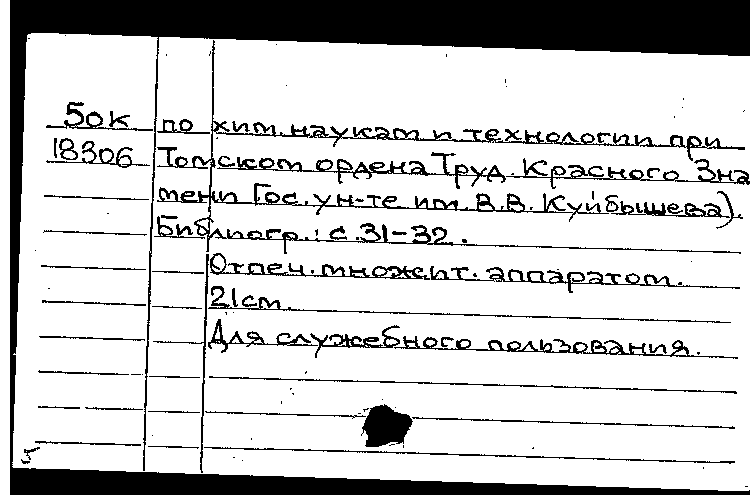 50к по хим. наукам и технологии при
18306 Томском ордена Труд. Красного Зна
мени Гос. ун-те им. В.В. Куйбышева).
Библиогр.: с. 31-32.
Отпеч. множит. аппаратом.
21см.
Для служебного пользования.
5